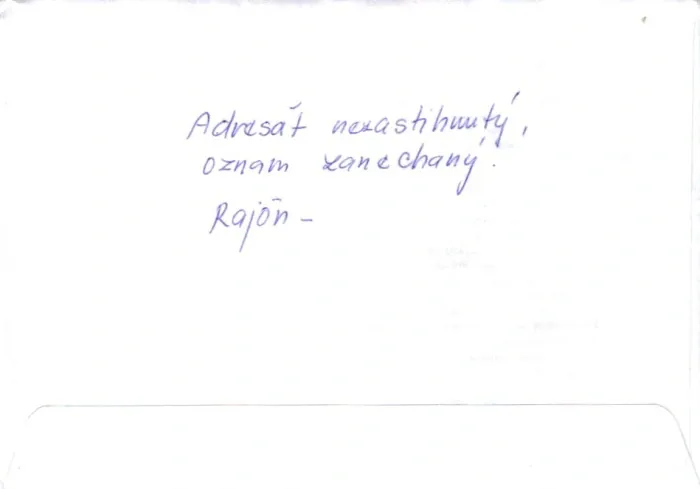 Adresát nezastihnutý,
oznam zanechaný.
Rajón -